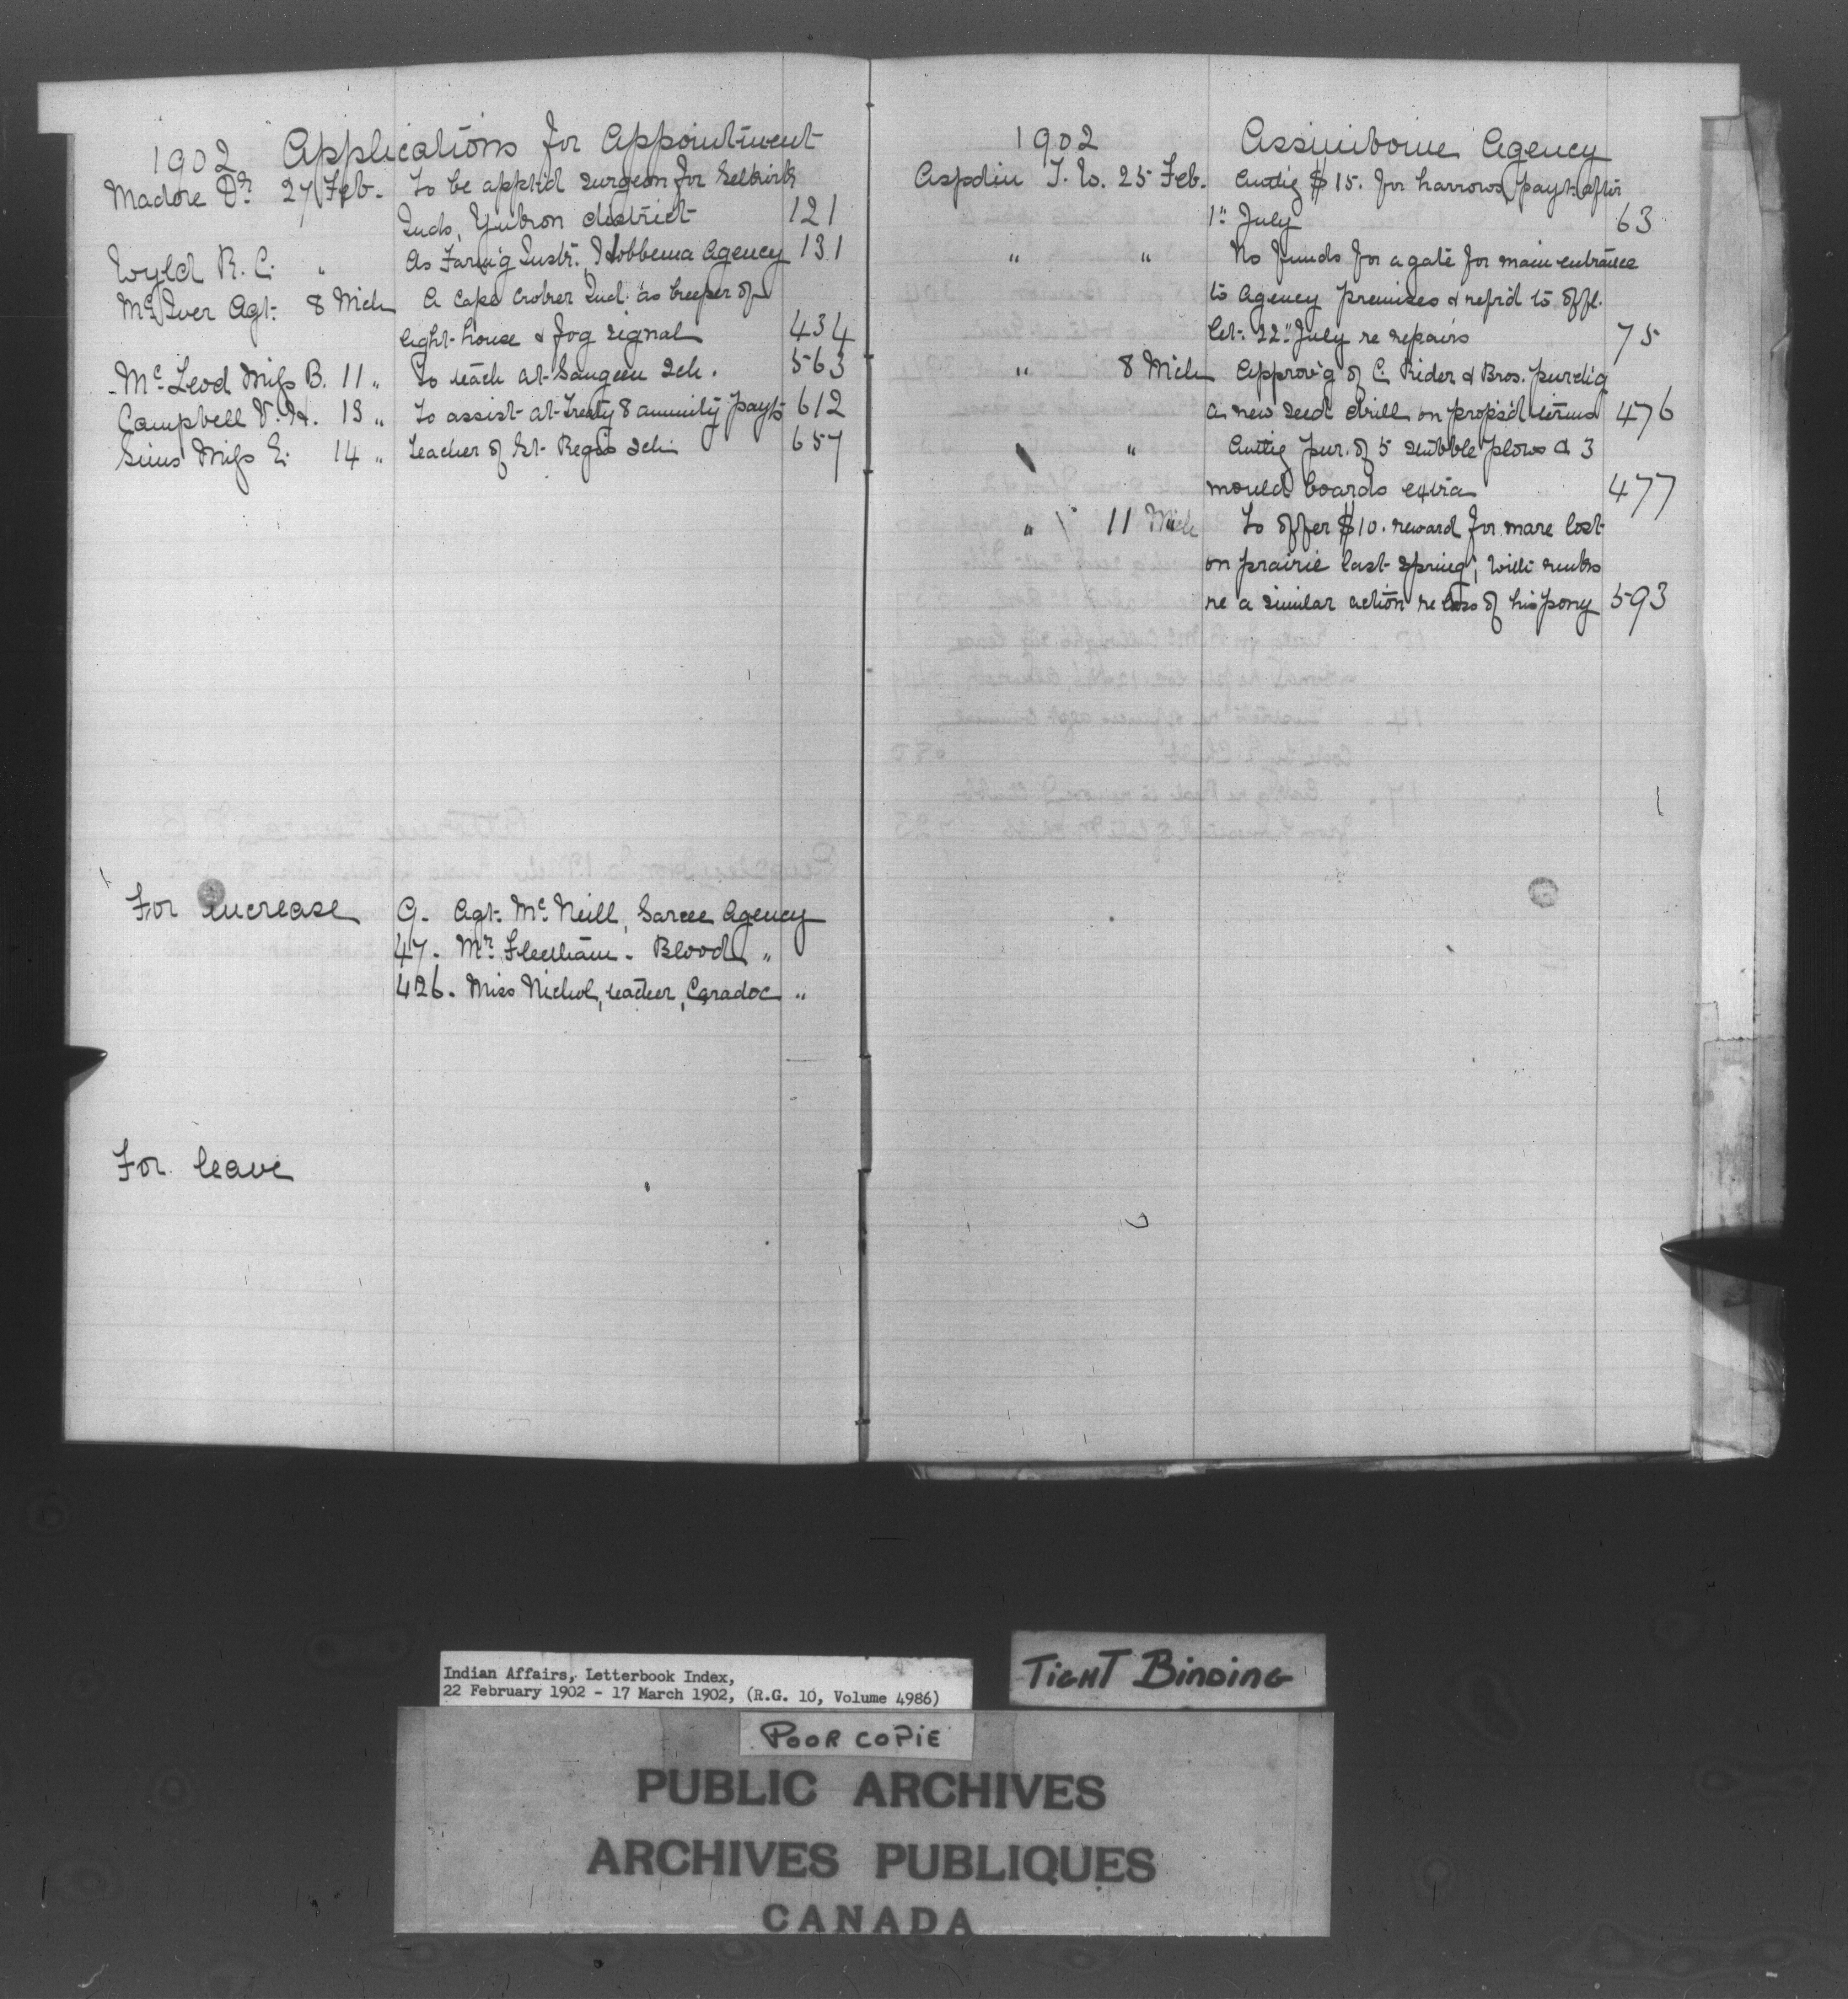 1902 Applications for Appointment
Madore Dr. 27 Feb. To be appt'd surgeon for Selkirk
Inds, Yukon district 121
Wyld R. C. " As Farm'g Instr. Hobbema Agency 131
McIver Agt. 8 Mch A Cape Croker Ind. as keeper of
light-house & fog signal 434
McLeod Miss B. 11 " To teach at Saugeen Sch. 563
Campbell V. H. 13 " To assist at Treaty 8 annuity payts 612
Sims Miss E. 14 " Teacher of St. Regis Sch 657
For increase 9. Agt. McNeill, Sarcee Agency
47. Mr. Fleetham. Blood "
426. Miss Nichol, teacher, Caradoc "
For leave
1902 Assiniboine Agency
Aspdin T. W. 25 Feb. Authg $15. for harrows, payt after
1st July 63
" " No funds for a gate for main entrance
to Agency premises & refr'd to offl.
let. 22nd July re repairs 75
" 8 Mch Approv'g of C. Rider & Bros. purch'g
a new seed drill on propos'd terms 476
" Authg pur. of 5 stubble plows & 3
mould boards extra 477
" 11 Mch To offer $10. reward for mare lost
on prairie last spring,
re a similar action re loss of his pony 593
Indian Affairs, Letterbook Index,
22 February 1902 - 17 March 1902, (R.G. 10, Volume 4986)
TIGHT BINDING
POOR COPIE
PUBLIC ARCHIVES
ARCHIVES PUBLIQUES
CANADA